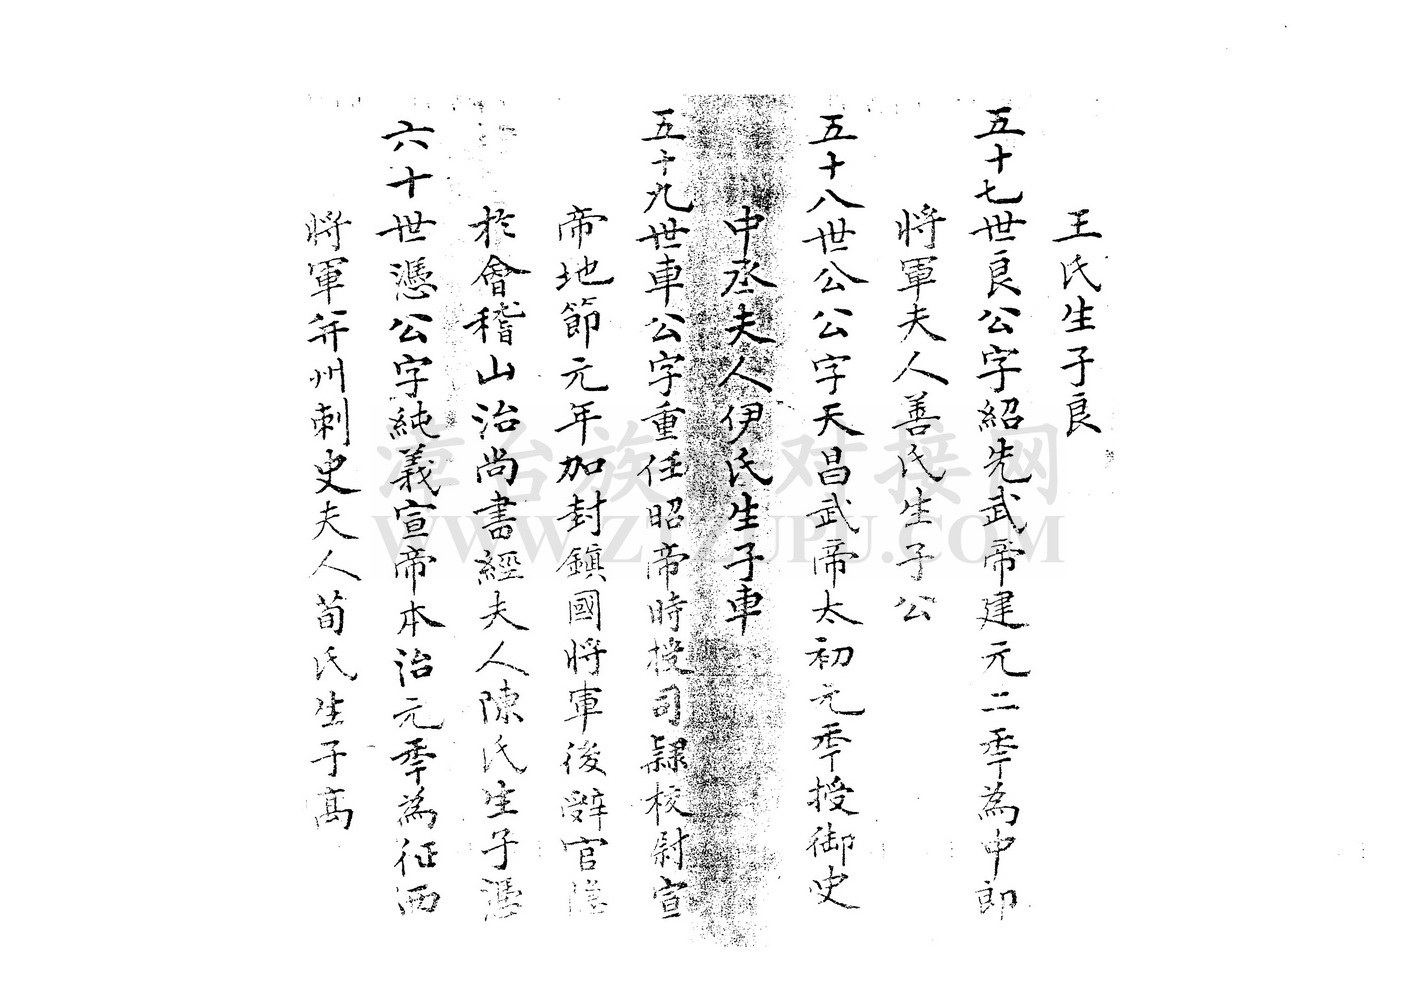 王氏生子良
五十七世良公字紹先武帝建元二季為中郎
將軍夫人善氏生子公
五十八世公公字天昌武帝太初元季授御史
中丞夫人伊氏生子車
五十九世車公字重任昭帝時授司隷校尉宣
帝地節元年加封鎮國將軍後辭官隱
於會稽山治尚書經夫人陳氏生子憑
六十世憑公字純義宣帝本治元季為征西
將軍并州刺史夫人荀氏生子高
漳台族谱对接网
WWW.ZTZUPU.COM